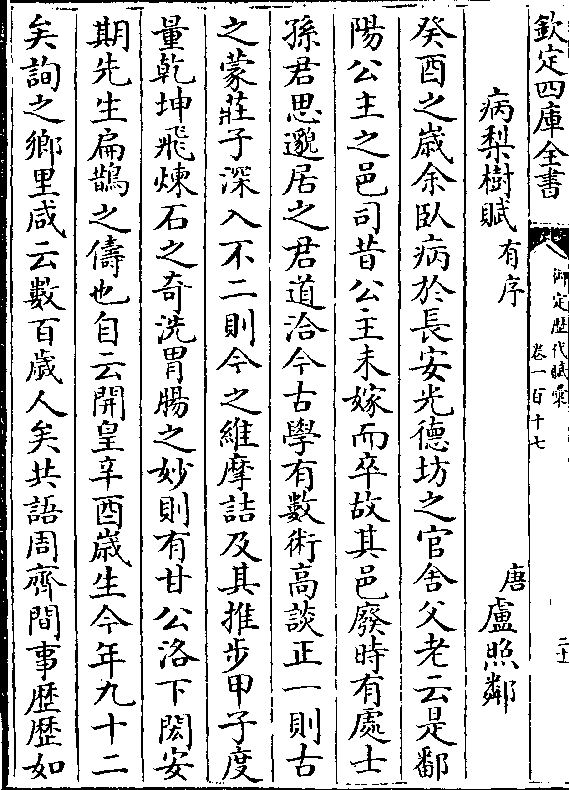 欽定四庫全書
御定歴代賦彙
卷一百十七
病梨樹賦 有序 唐 盧照鄰
癸酉之歲余臥病於長安光德坊之官舍父老云是鄱
陽公主之邑司昔公主未嫁而卒故其邑廢時有處士
孫君思邈居之君道洽今古學有數術高談正一則古
之蒙莊子深入不二則今之維摩詰及其推步甲子度
量乾坤飛煉石之奇洗胃腸之妙則有甘公洛下閎安
期先生扁鵲之儔也自云開皇辛酉歲生今年九十二
矣詢之鄉里咸云數百歲人矣共語周齊間事歴歴如